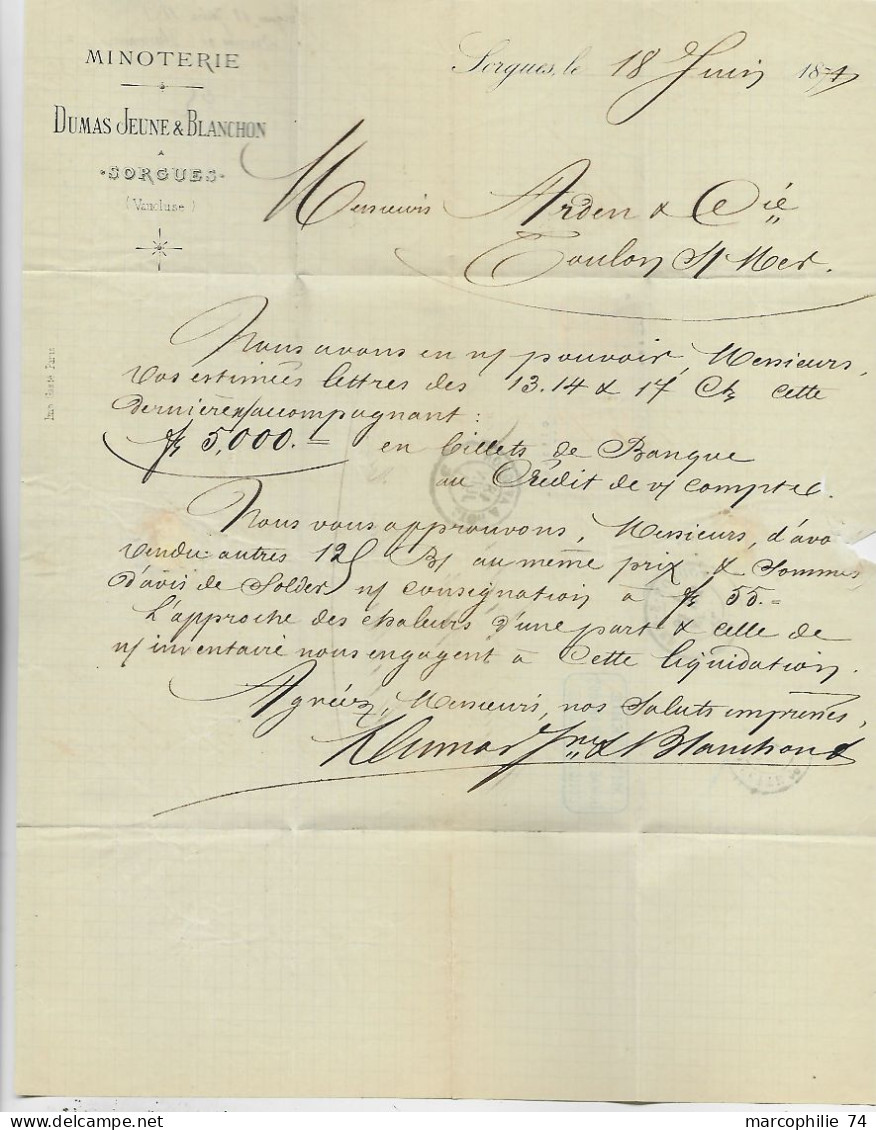 MINOTERIE
DUMAS JEUNE & BLANCHON
A
SORGUES
(Vaucluse)
Sorgues, le 18 Juin 187
Messieurs Arden & Cie
Toulon s/ Mer.
Nous avons en n/ pouvoir, Messieurs,
vos estimées lettres des 13.14 & 17 Ct, cette
dernière accompagnant :
fr 5,000.= en billets de Banque
au Crédit de v/ compte.
Nous vous approuvons, Messieurs, d'avo
vendu autres 125 B/ au même prix & sommes
d'avis de solder n/ consignation à fr 55.=
L'approche des chaleurs d'une part & celle de
n/ inventaire nous engagent à cette liquidation.
Agréez, Messieurs, nos saluts empressés,
Dumas Jne & Blanchon
marcophilie 74